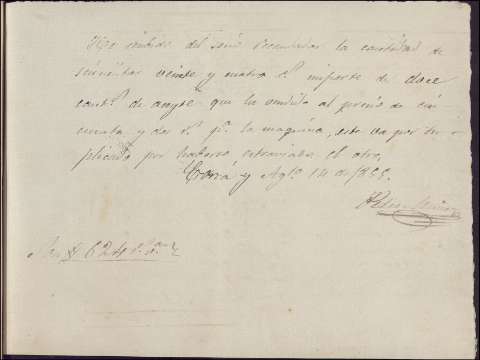 He recibido del señor Recaudador la cantidad de
seiscientos veinte y cuatro r.s importe de doce
cant.s de que le vendido al precio de cin-
cuenta y dos r.s p.a la maquina, este va por du-
plicado por haberse extraviado el otro.
y Ag.to 14 de 18
Pedro Muñoz
Son $ 624 r.s